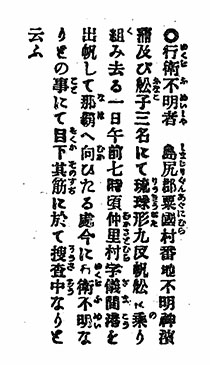 ◎行衛不明者　島尻郡粟國村番地不明神濱
蒲及び舩子三名にて琉球形九反帆舩に乘り
組み去る一日午前七時頃仲里村字儀間港を
出帆して那覇へ向ひたる處今に行衛不明な
りとの事にて目下其筋に於て捜査中なりと
云ふ